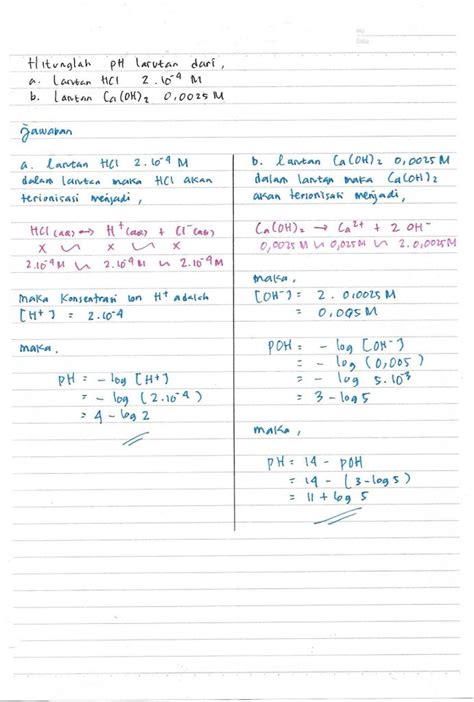 NO
Date
Hitunglah pH larutan dari,
a. Larutan HCl 2.10⁻⁴ M
b. Larutan Ca(OH)₂ 0,0025 M
Jawaban
a. Larutan HCl 2.10⁻⁴ M
dalam larutan maka HCl akan
terionisasi menjadi,
HCl (aq) → H⁺(aq) + Cl⁻(aq)
x ∽ x ∽ x
2.10⁻⁴ M ∽ 2.10⁻⁴ M ∽ 2.10⁻⁴ M
maka konsentrasi ion H⁺ adalah
[H⁺] = 2.10⁻⁴
maka,
pH = - log [H⁺]
= - log (2.10⁻⁴)
= 4 - log 2
b. larutan Ca(OH)₂ 0,0025 M
dalam larutan maka Ca(OH)₂
akan terionisasi menjadi,
Ca(OH)₂ → Ca²⁺ + 2 OH⁻
0,0025 M ∽ 0,025 M ∽ 2.0,0025 M
maka,
[OH⁻] = 2 . 0,0025 M
= 0,005 M
POH = - log [OH⁻]
= - log (0,005)
= - log 5.10⁻³
= 3 - log 5
maka,
pH = 14 - pOH
= 14 - (3 - log 5)
= 11 + log 5